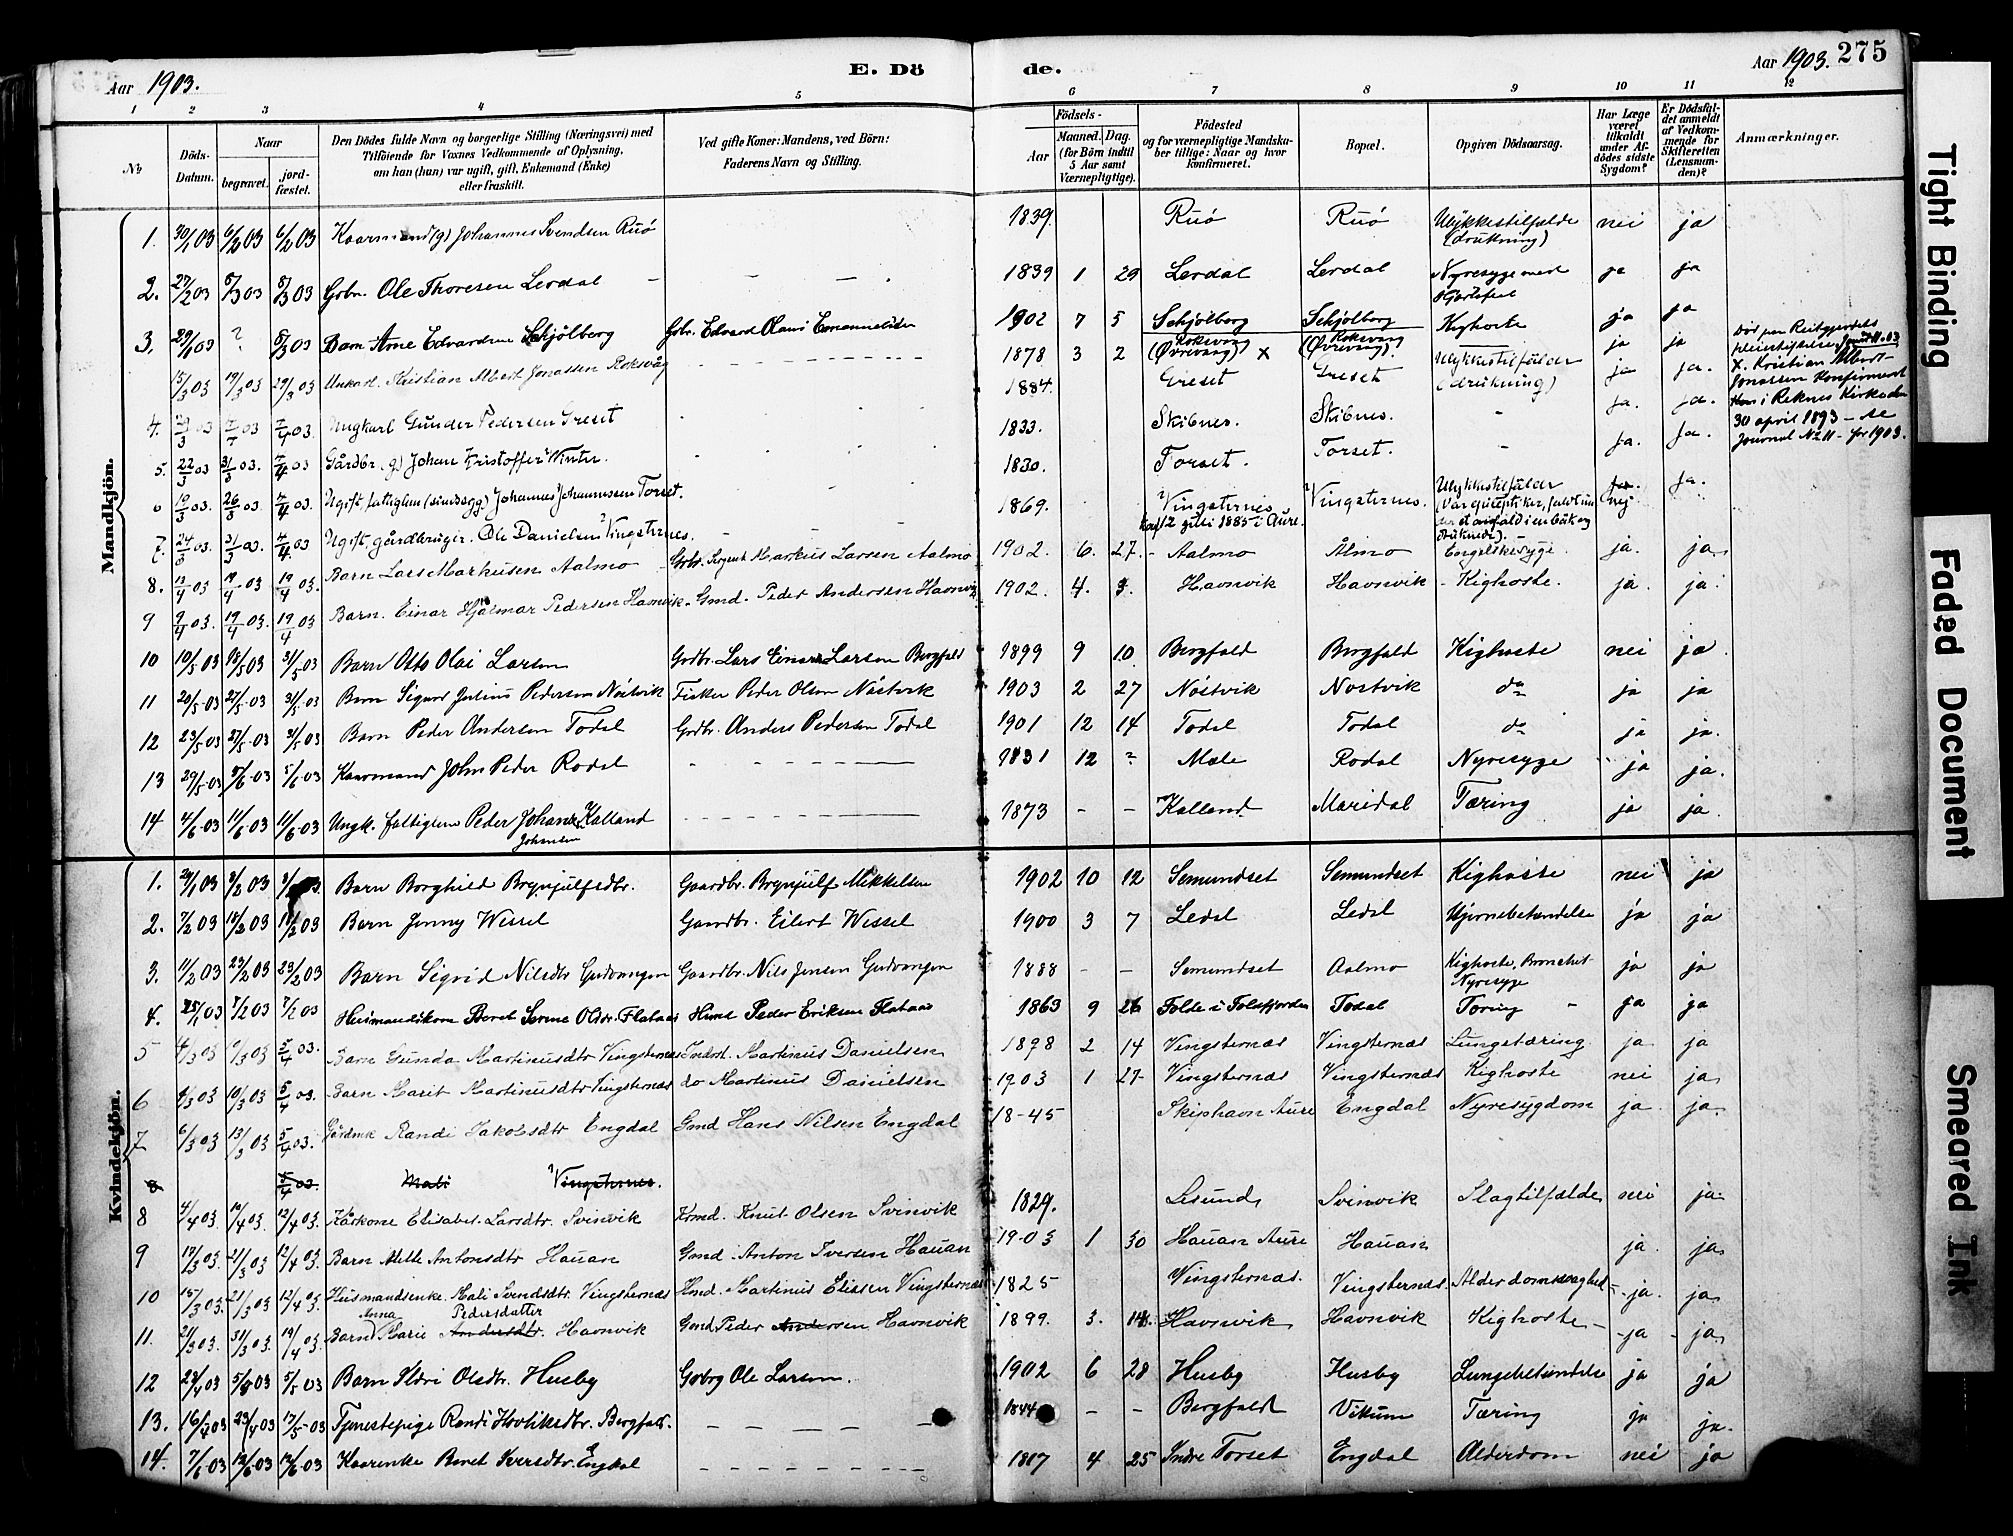 Aar 1903.
E. Dö
de.
Aar 1903. 275
1 2 3 4 5 6 7 8 9 10 11 12
№
Döds-Datum.
Naar
begravet.
jord-fæstet.
Den Dödes fulde Navn og borgerlige Stilling (Næringsvei) med
Tilföiende for Voxnes Vedkommende af Oplysning,
om han (hun) var ugift, gift, Enkemand (Enke)
eller fraskilt.
Ved gifte Koner: Mandens, ved Börn:
Faderens Navn og Stilling.
Födsels-
Aar
Maaned. Dag.
(for Börn indtil
5 Aar samt
Værnepligtige).
Födested
og for værnepligtige Mandska-
ber tillige: Naar og hvor
konfirmeret.
Bopæl.
Opgiven Dödsaarsag.
Har Læge
været
tilkaldt
under Af-
dödes sidste
Sygdom?
Er Dödsfal-
det anmeldt
af Vedkom-
mende for
Skifteretten
(Lensman-
den)?
Anmærkninger.
Mandkjön.
1. 30/1 03 6/2 03 6/2 03 Kaarmand (g) Johannes Svendsen Ruö 1839 Ruö Ruö Ulykkestilfælde (drukning) nei ja
2. 27/2 03 8/3 03 8/3 03 Grbr. Ole Thoresen Lerdal 1839 1 29 Lerdal Lerdal Nyresyge med ja ja
3. 29/1 03 ? 8/3 03 Barn Arne Edvardsen Schjölberg Grbr. Edvard Olaus 1902 7 5 Schjölberg Schjölberg Kighoste ja ja
15/3 03 19/3 03 29/3 03 Unkarl. Kristian Albert Jonassen Roksvåg 1878 3 2 Roksvaag (Övrevaag) x Roksvaag (Övrevaag). Ulykkestilfælde (drukning) ja ja
X. Kristian Albert Jonassen Konfirmert i Reknes Kirke den 30 april 1893 - se Journal № 11 - for 1903.
4. 29/3 03 7/4 03 7/4 03. Ungkarl Gunder Pedersen Greset 1884. Greset Greset ja ja.
5. 22/3 03 31/3 03. 7/4 03 Gårdbr. (g) Johan Kristoffer Winter. 1833. Skibnes. Skibnes. - ja. ja.
6 19/3 03 26/3 03. 7/4 03. Ugift, fattiglem (sindssyg) Johannes Johannessen Torset. 1830. Torset. Torset. ja. ja.
7. 24/3 03. 31/3 03. 4/4 03 Ugift, gårdbruger. Ole Danielsen Vingsternes. 1869. Vingsternes konf 12 gili 1885 i Aure. Vingsternes. Ulykkestilfælde nej ja.
8. 13/4 03 19/4 03 19/4 03. Barn Lars Markusen Aalmo Grbr. Sergeant Markus Larsen Aalmo 1902. 6. 27. Aalmo Ålmo Engelskesyge. ja. ja.
9 9/4 03. 19/4 03. 19/4 03 Barn. Einar Hjalmar Pedersen Havnvik Gmd. Peder Andersen Havnvig 1902. 4. 3. Havnvik Havnvik Kighoste. ja. ja.
10 10/5 03 18/5 03 31/5 03 Barn Otto Olai Larsen Grdbr. Lars Einar Larsen Bergfald 1899 9 10 Bergfald Bergfald Kighoste nei ja
11 20/5 03 27/5 03 31/5 03 Barn Sigurd Julius Pedersen Nöstvik Fisker Peder Olsen Nöstvik 1903 2 27 Nöstvik Nöstvik do ja ja
12 23/5 03 27/5 03 31/5 03 Barn Peder Andersen Todal Grdbr. Anders Pedersen Todal 1901 12 14 Todal Todal do ja ja.
13 29/5 03 5/6 03 5/6 03 Kaarmand John Peder Rodal 1831 12 ? Mæle Rodal Nyresyge ja ja.
14 4/6 03 11/6 03 11/6 03 Ungk. fattiglem Peder Johan Kalland Johnsen 1873 - - Kalland Maridal Tæring ja ja.
Kvindekjön.
1. 29/1 03 8/2 03 Barn Borghild Brynjulfsdtr. Gaardbr. Brynjulf Mikkelsen 1902 10 12 Semundset Semundset Kighoste nei ja
2. 7/2 03 18/2 03 18/2 03 Barn Jenny Wessel Gaardbr. Eilert Wessel 1900 3 7 Ledal Ledal Hjernebetændelse ja ja
3. 11/2 03 23/2 03 23/2 03 Barn Sigrid Nilsdtr Gudvangen Gaardbr. Nils Jensen Gudvangen 1888 - - Semundset Aalmo Kighoste, Bronchit Nyresyge ja ja
4. 25/1 03. 7/2 03 7/2 03 Husmandskone Beret Serine Olsdtr. Flataas Husmd Peder Eriksen Flataas 1863 9 26 Folde i Folefjorden Todal Tæring ja ja
5 4/3 03 9/3 03 5/4 03. Barn Gunda Martinusdtr Vingsternes Inderst. Martinus Danielsen 1898 2 14 Vingsternæs Vingsternæs Lungetæring ja ja
6 4/3 03 10/3 03 5/4 03. Barn Marit Martinusdtr Vingsternæs do Martinus Danielsen 1903 1 27 Vingsternæs Vingsternæs Kighoste nei ja
7 6/3 03 13/3 03 5/4 03. Randi Jakobsdtr Engdal Gmd Hans Nilsen Engdal 18-45 Skiphavn Aure Engdal Nyresygdom ja ja.
8 4/4 03. Mali Vingsternes.
8 4/4 03. 10/4 03. 12/4 03. Kårkone Elisabet Larsdtr. Svinvik Krmd. Knut Olsen Svinvik 1829. Lesund Svinvik Slagtilfælde nei ja
9 17/3 03. 21/3 03 12/4 03. Barn Mette Antonsdtr Hauan Gmd. Anton Iversen Hauan 1903 1 30 Hauan Aure Hauan ja. ja.
10 15/3 03. 21/3 03 12/4 03. Husmandsenke. Mali Svendsdtr. Vingsternæs Hmd. Martinus Eliasen Vingsternæs 1825 Vingsternæs. Vingsternæs. Alderdomssvaghed ja. ja.
11. 21/3 03. 31/3 03. 19/4 03. Barn Anna Marie Andersdtr. Pedersdatter Havnvik Gmd. Peder Andersen Havnvik 1899. 3. 14. Havnvik Havnvik Kighoste ja ja.
12 28/4 03 5/5 03 5/5 03 Barn Ildri Olsdtr. Husby Grbrg Ole Larsen. 1902 6 28 Husby Husby Lungebetændelse ja ja
13. 16/4 03 23/4 03 17/5 03 Tjenestepige Randi Hovliksdtr. Bergfald. 1844 - - Bergfald Vikum Tæring ja ja.
14. 7/6 03 12/6 03 12/6 03 Kaarenke Beret Iversdtr. Engdal 1817 4 25 Indre Torset Engdal Alderdom nei ja
Tight Binding
Faded Document
Smeared Ink